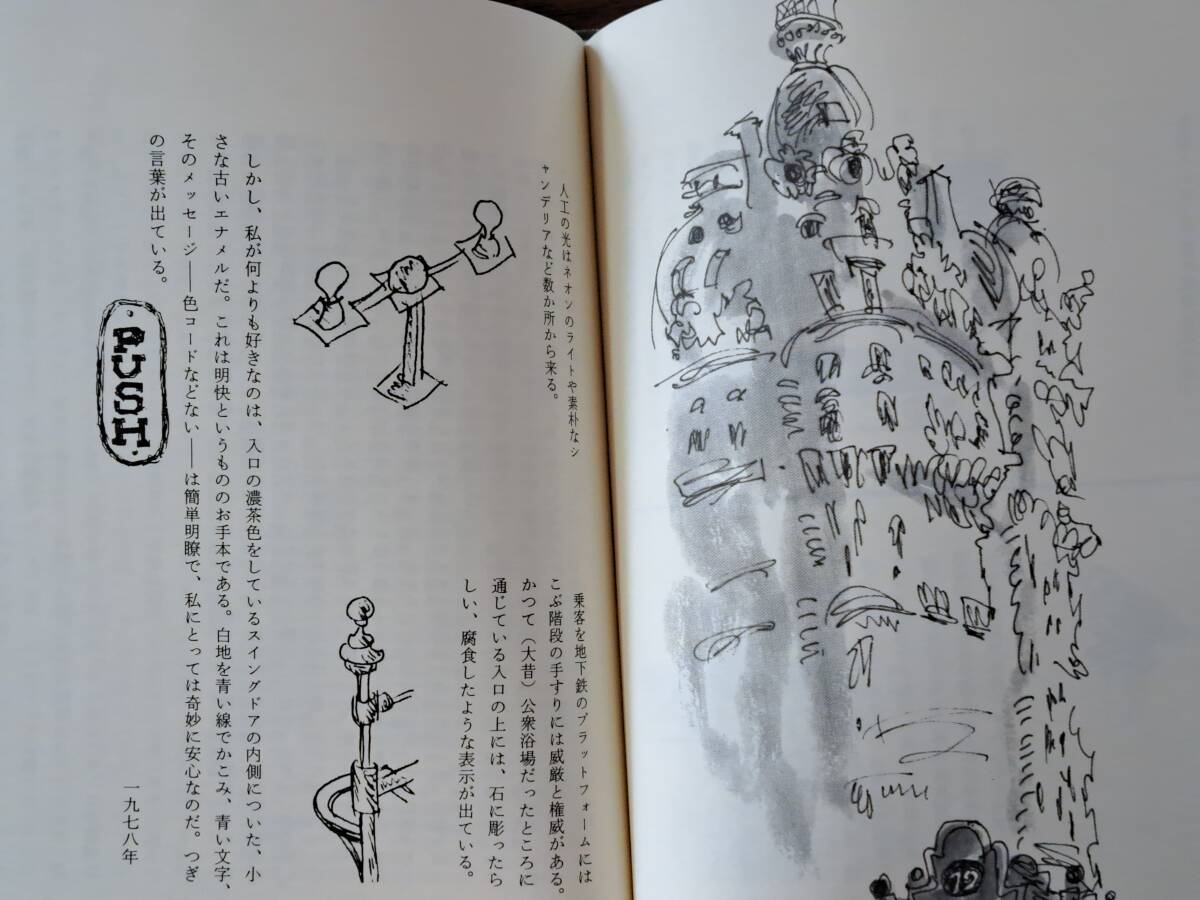 人工の光はネオンのライトや素朴なシ
ャンデリアなど数か所から来る。
乗客を地下鉄のプラットフォームには
こぶ階段の手すりには威厳と権威がある。
かつて（大昔）公衆浴場だったところに
通じている入口の上には、石に彫ったら
しい、腐食したような表示が出ている。
しかし、私が何よりも好きなのは、入口の濃茶色をしているスイングドアの内側についた、小
さな古いエナメルだ。これは明快というもののお手本である。白地を青い線でかこみ、青い文字、
そのメッセージ――色コードなどない――は簡単明瞭で、私にとっては奇妙に安心なのだ。つぎ
の言葉が出ている。
PUSH
一九七八年
12